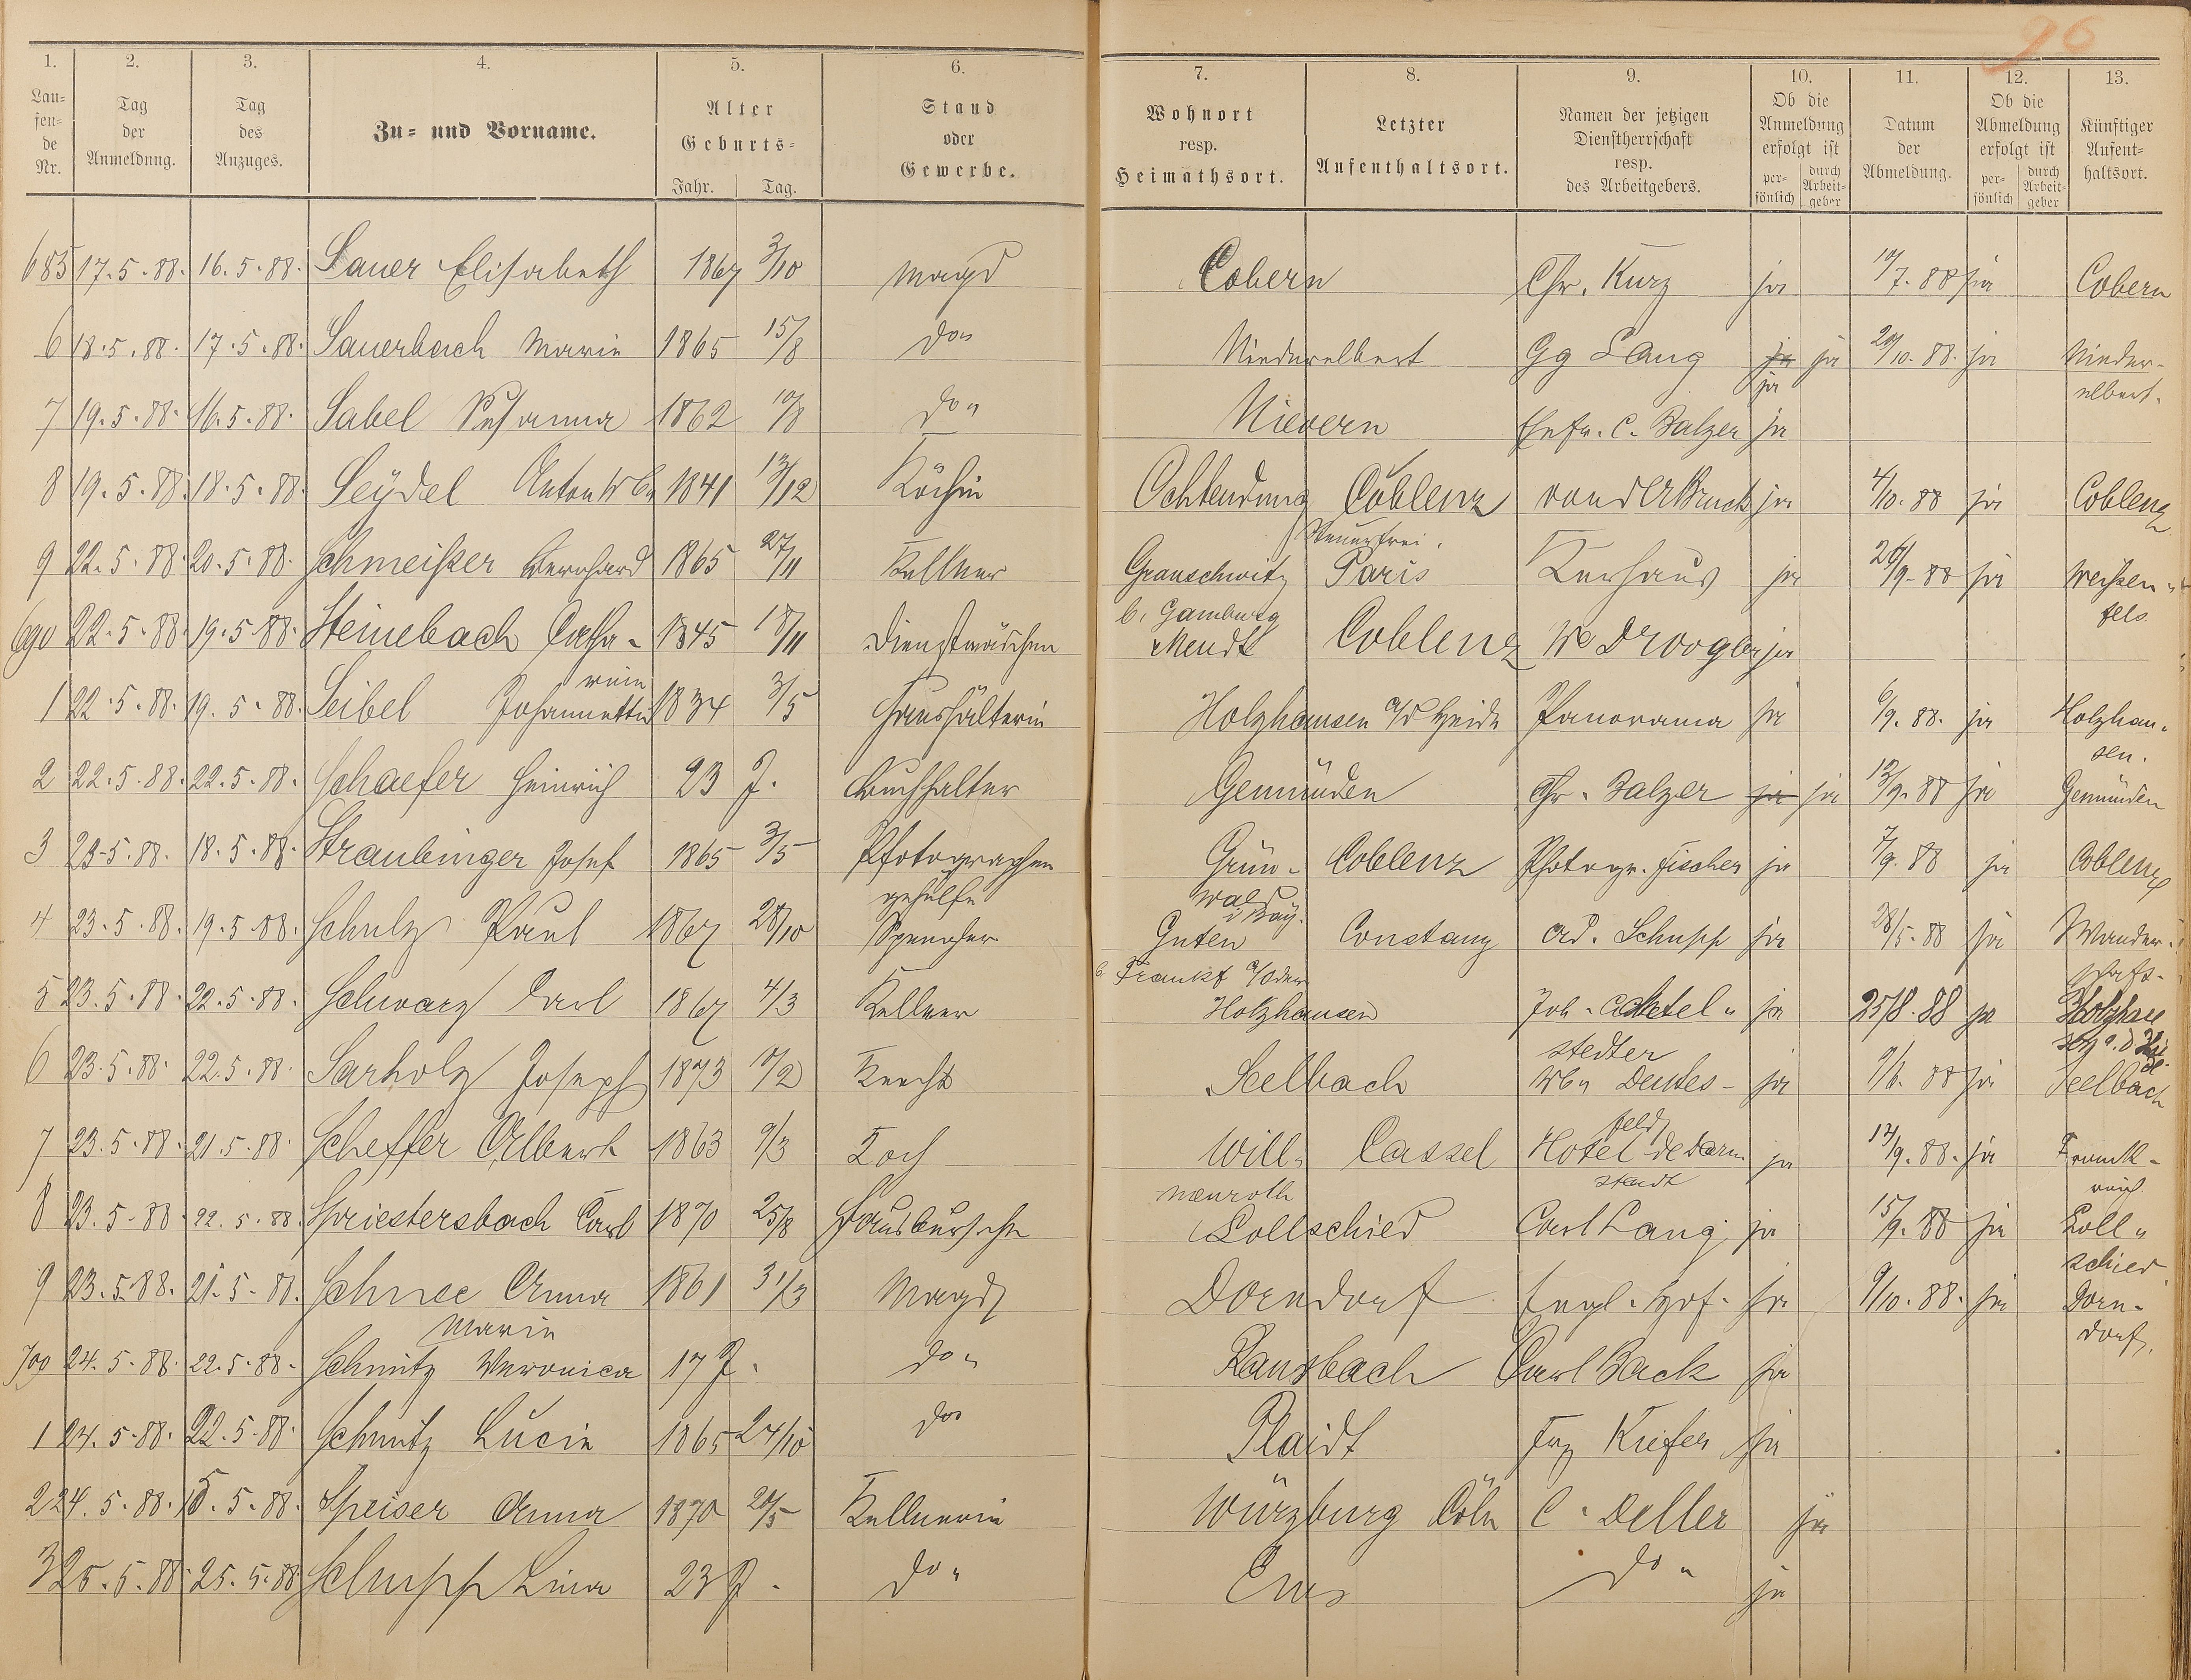 96
1. 2. 3. 4. 5. 6. 7. 8. 9. 10. 11. 12. 13.
Lau-
fen-
de
Nr.
Tag
der
Anmeldung.
Tag
des
Anzuges.
Zu- und Vorname.
Alter
Geburts-
Jahr. Tag.
Stand
oder
Gewerbe.
Wohnort
resp.
Heimathsort.
Letzter
Aufenthaltsort.
Namen der jetzigen
Dienstherrschaft
resp.
des Arbeitgebers.
Ob die
Anmeldung
erfolgt ist
per-
sönlich
durch
Arbeit-
geber
Datum
der
Abmeldung.
Ob die
Abmeldung
erfolgt ist
per-
sönlich
durch
Arbeit-
geber
Künftiger
Aufent-
haltsort.
685 17.5.88. 16.5.88. Sauer Elisabeth 1867 3/10 Magd Cobern Chr. Kurz ja 10/7.88 ja Cobern
6 18.5.88. 17.5.88. Sauerbach Marie 1865 15/8 do Niederelbert Gg Lang ja ja 20/10.88. ja Nieder-
elbert.
ja
7 19.5.88. 16.5.88. Sabel Susanna 1862 10/8 do Nievern Ehefr. C. Balzer ja
8 19.5.88. 18.5.88. Seydel Anton Wb 1841 13/12 Köchin Ochtendung Coblenz von der Bruck ja 4/10.88 ja Coblenz
Steuerfrei.
9 22.5.88. 20.5.88. Schmeißer Bernhard 1865 27/11 Kellner Granschwitz Paris Kurhaus ja 26/9.88 ja Weißen-
fels
690 22.5.88. 19.5.88. Steinebach Catha- 1845 18/11 Dienstmädchen Mendt Coblenz We Droogler ja
rina
1 22.5.88. 19.5.88. Seibel Johannette 1834 3/5 Haushälterin Holzhausen a/d Heide Panorama ja 6/9.88. ja Holzhau-
sen.
2 22.5.88. 22.5.88. Schaefer Heinrich 23 J. Buchhalter Gemünden Chr. Balzer ja ja 13/9.88 ja Gemünden
3 23.5.88. 18.5.88. Straubinger Josef 1865 3/5 Photographen Grün- Coblenz Photogr. Fischer ja 7/9.88 ja Coblenz
gehülfe
wald
i Bay.
4 23.5.88. 19.5.88. Schulz Paul 1867 28/10 Spengler Guten Constanz Ad. Schupp ja 28/5.88 ja Wander-
schaft-
b. Frankf a/Oder
5 23.5.88. 22.5.88. Schwarz Carl 1867 4/3 Kellner Holzhausen Joh. Castel- ja 25/8.88 ja Holzhau
stedter
6 23.5.88. 22.5.88. Sarholz Joseph 1873 10/2 Knecht Seelbach Wb Deutes- ja 9/6.88 ja Seelbach
feld
7 23.5.88. 21.5.88. Scheffer Albert 1863 9/3 Koch Will- Cassel Hotel de Darm ja 14/9.88. ja Frank-
reich
menroth
stadt
8 23.5.88. 22.5.88. Spriestersbach Carl 1870 25/8 Hausbursche Lollschied Carl Lang ja 15/9.88 ja Loll-
schied
9 23.5.88. 21.5.88. Schnee Anna 1861 31/3 Magd Dorndorf Engl. Hof. ja 9/10.88. ja Dorn-
dorf.
Marie
700 24.5.88. 22.5.88. Schmitz Veronica 17 J. do Ransbach Carl Back ja
1 24.5.88. 22.5.88. Schmitz Lucie 1865 24/10 do Plaidt Frz Kiefer ja
2 24.5.88. 15.5.88. Speiser Anna 1870 20/5 Kellnerin Würzburg Cöln C. Deller ja
3 25.5.88. 25.5.88 Schupp Lina 23 J. do Ems do ja